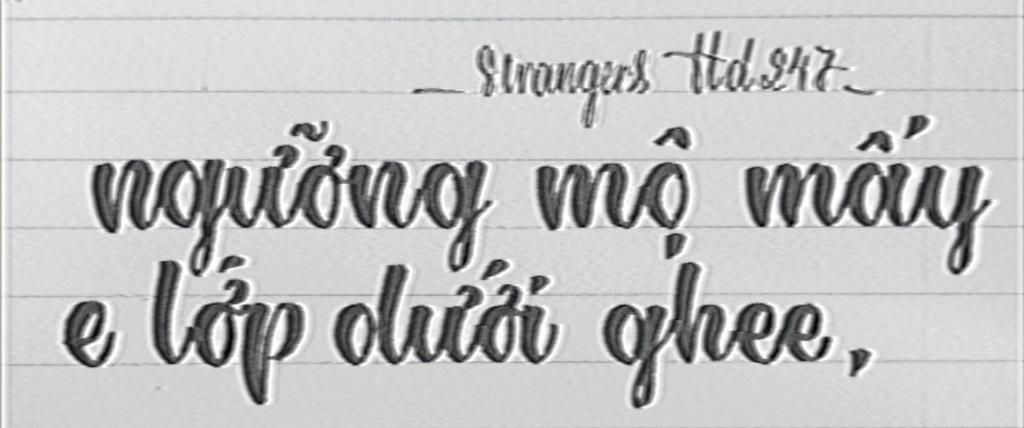 _ Strangers Hd 247_
ngưỡng mộ mấy
e lớp dưới ghee,